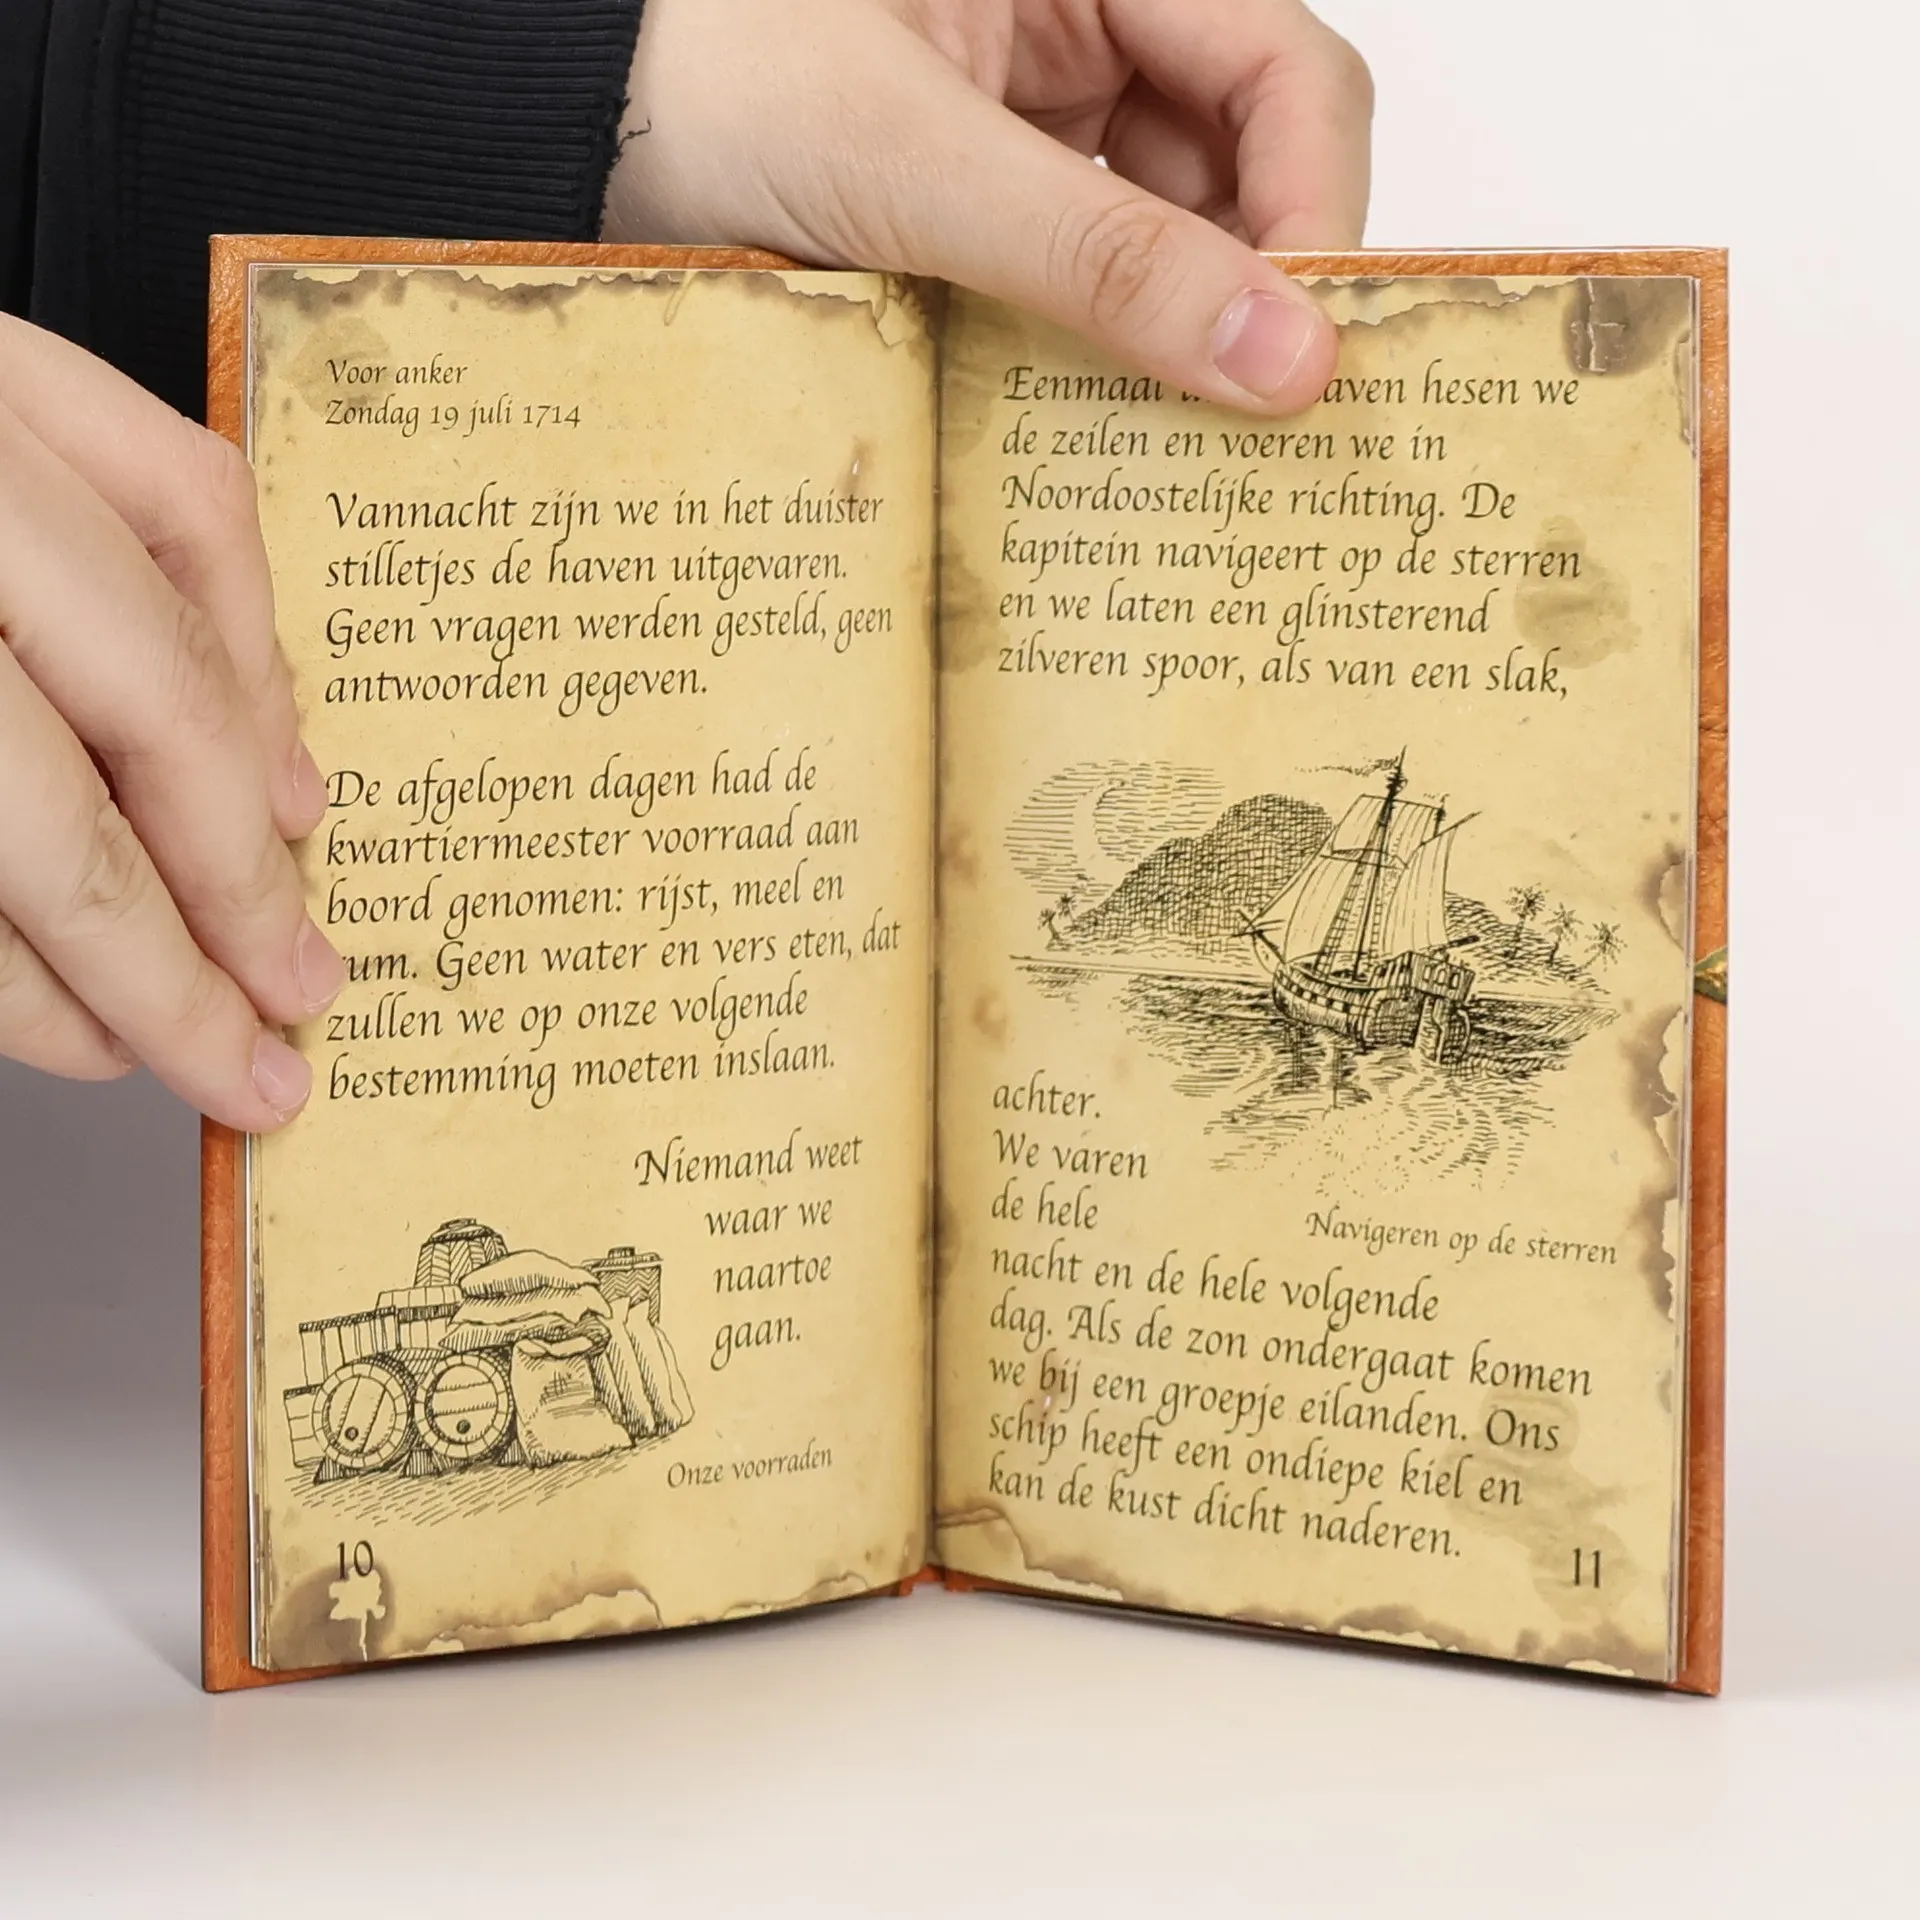 Voor anker
Zondag 19 juli 1714
Vannacht zijn we in het duister
stilletjes de haven uitgevaren.
Geen vragen werden gesteld, geen
antwoorden gegeven.
De afgelopen dagen had de
kwartiermeester voorraad aan
boord genomen: rijst, meel en
rum. Geen water en vers eten, dat
zullen we op onze volgende
bestemming moeten inslaan.
Niemand weet
waar we
naartoe
gaan.
Onze voorraden
10
Eenmaal haven hesen we
de zeilen en voeren we in
Noordoostelijke richting. De
kapitein navigeert op de sterren
en we laten een glinsterend
zilveren spoor, als van een slak,
achter.
We varen
de hele
Navigeren op de sterren
nacht en de hele volgende
dag. Als de zon ondergaat komen
we bij een groepje eilanden. Ons
schip heeft een ondiepe kiel en
kan de kust dicht naderen.
11